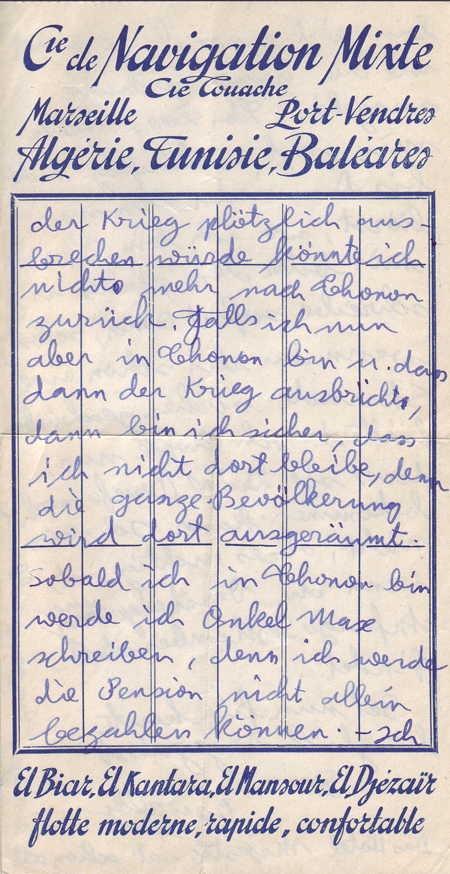 Cie de Navigation Mixte
Cie Touache
Marseille Port-Vendres
Algérie, Tunisie, Baléares
der Krieg plötzlich aus-
brechen würde könnte ich
nichts mehr nach Thonon
zurück. Falls ich nun
aber in Thonon bin u. dass
dann der Krieg ausbricht,
dann bin ich sicher, dass
ich nicht dort bleibe, denn
die ganze Bevölkerung
wird dort ausgeräumt.
Sobald ich in Thonon bin
werde ich Onkel Max
schreiben, denn ich werde
die Pension nicht allein
bezahlen können. – Ich
El Biar, El Kantara, El Mansour, El Djézaïr
flotte moderne, rapide, confortable